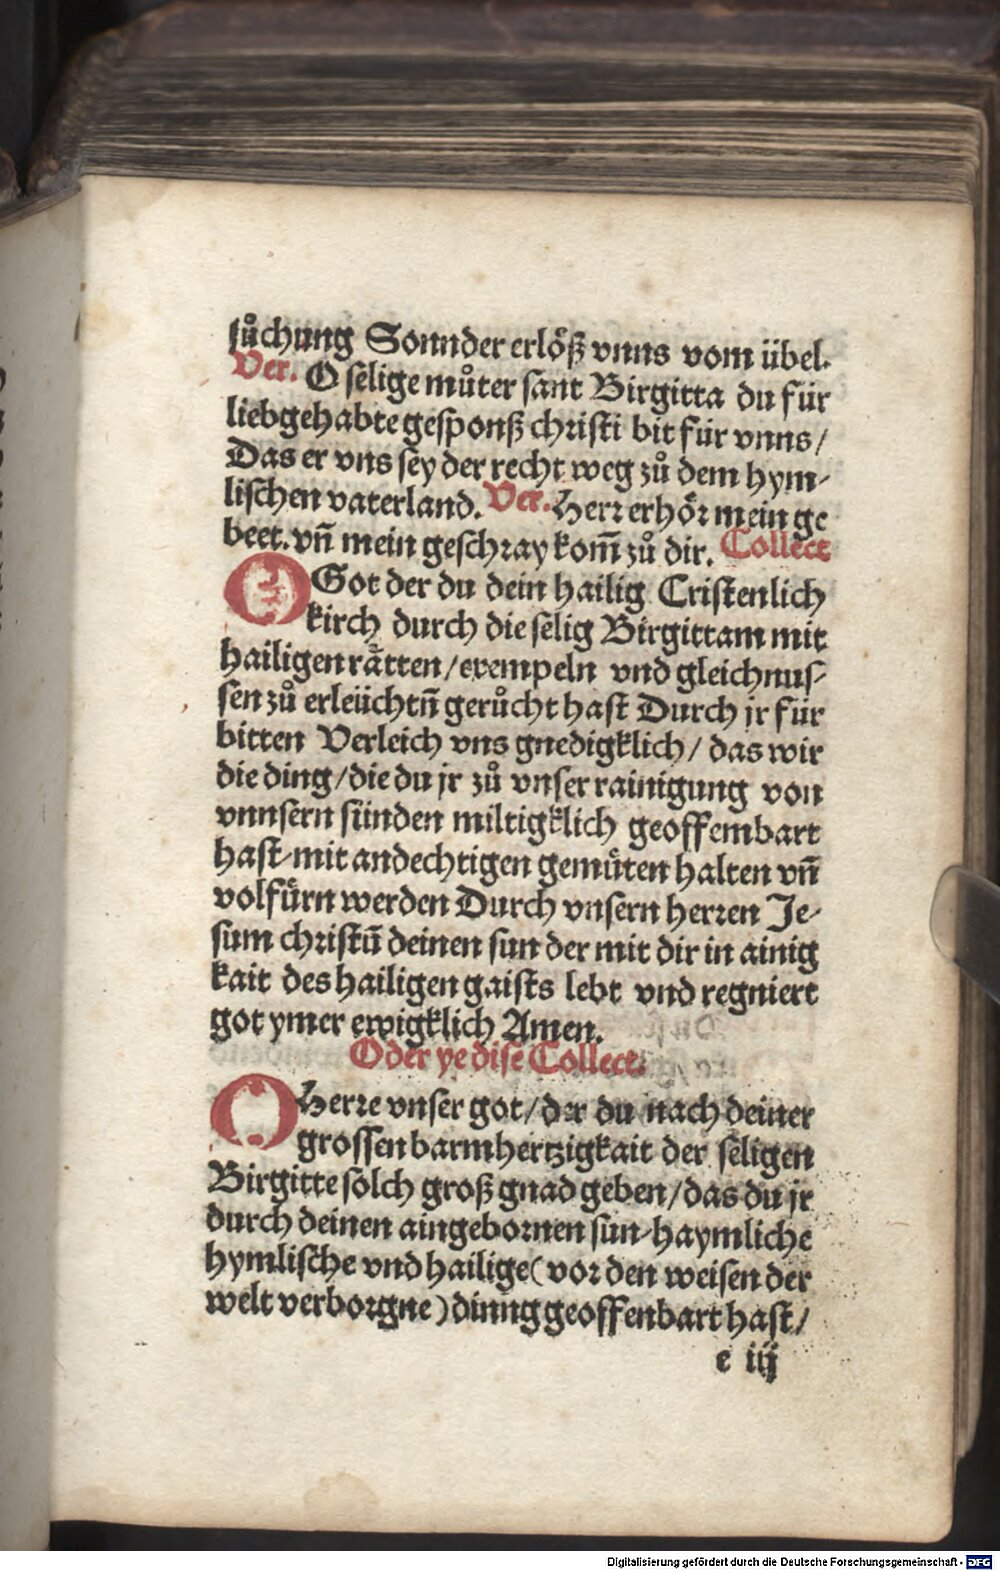 sůchung Sonnder erlöß vnns vom übel.
Ver. O selige můter sant Birgitta du für
liebgehabte gesponß christi bit für vnns /
Das er vns sey der recht weg zů dem hym-
lischen vaterland. Ver. Herr erhör mein ge
beet. vn̄ mein geschray kom̄ zů dir. Collect
O Got der du dein hailig Cristenlich
kirch durch die selig Birgittam mit
hailigen rätten / exempeln vnd gleichnus-
sen zů erleüchtn̄ gerůcht hast Durch jr für
bitten Verleich vns gnedigklich / das wir
die ding / die du jr zů vnser rainigung von
vnnsern sünden miltigklich geoffembart
hast mit andechtigen gemüten halten vn̄
volfürn werden Durch vnsern herren Je-
sum christū deinen sun der mit dir in ainig
kait des hailigen gaists lebt vnd regniert
got ymer ewigklich Amen.
Oder ye dise Collect.
O Herre vnser got / der du nach deiner
grossen barmhertzigkait der seligen
Birgitte solch groß gnad geben / das du jr
durch deinen aingebornen sun haymliche
hymlische vnd hailige (vor den weisen der
welt verborgne) dinng geoffenbart hast /
e iij
Digitalisierung gefördert durch die Deutsche Forschungsgemeinschaft - DFG